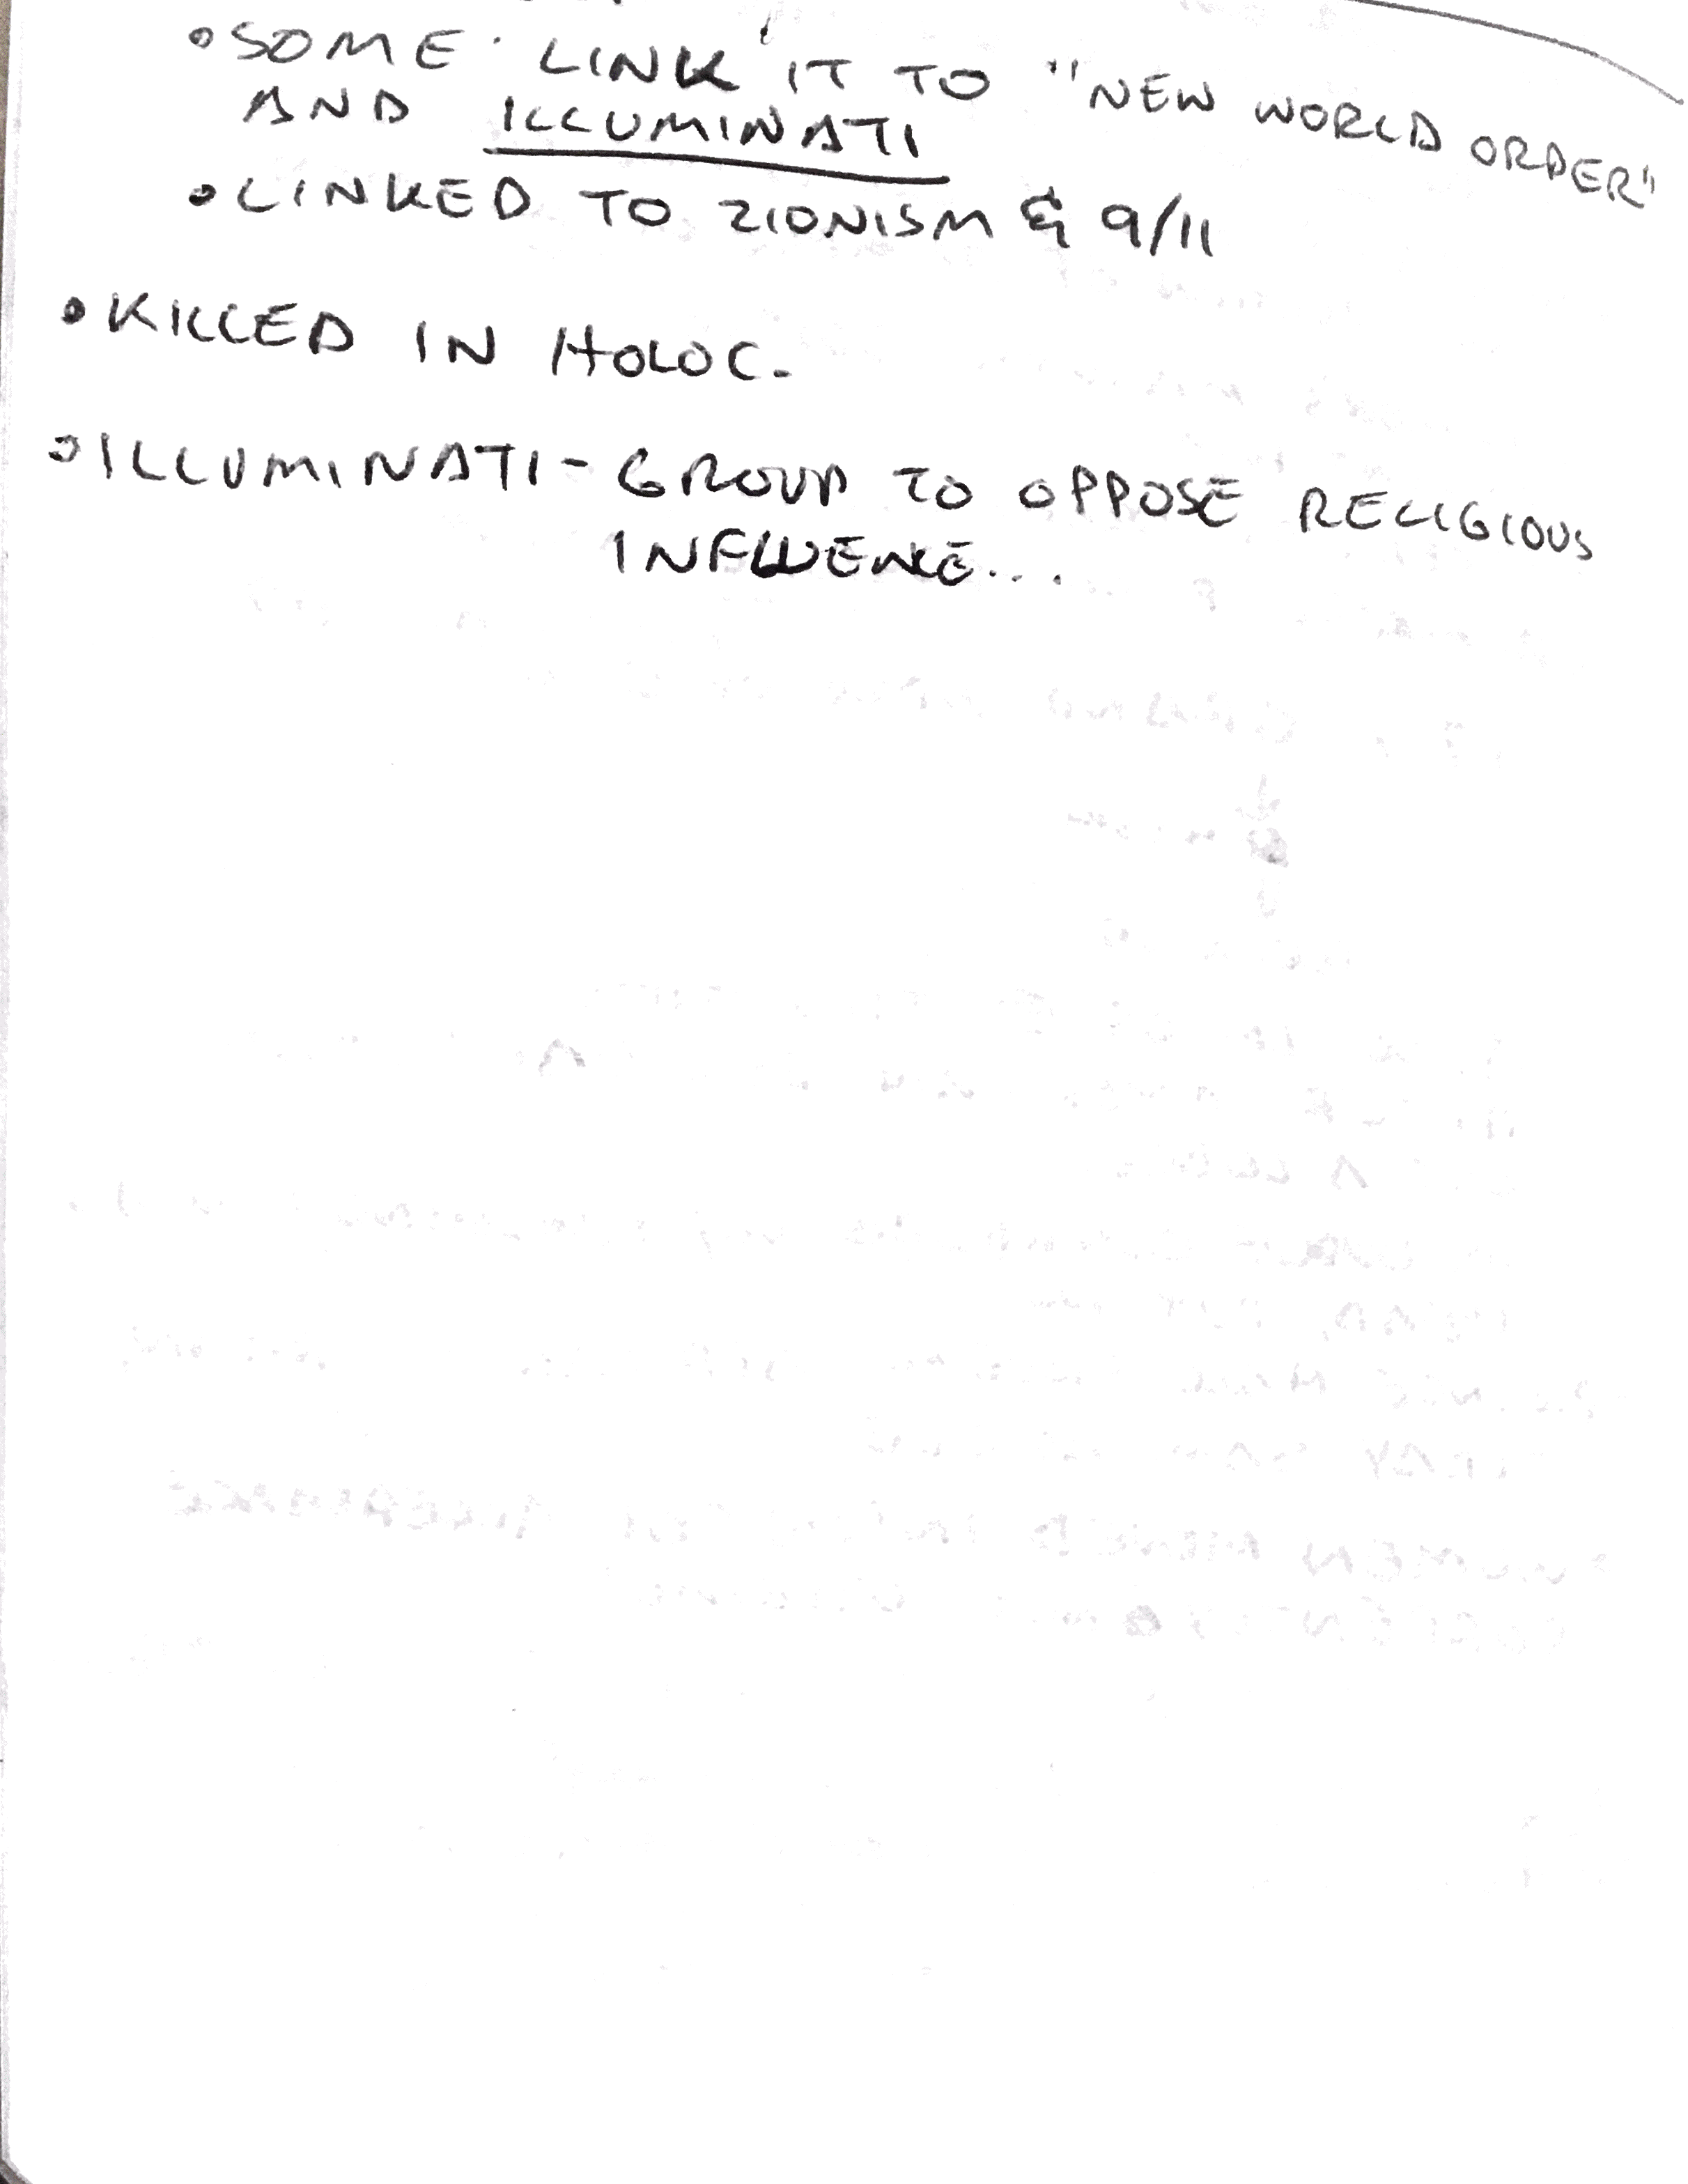 • SOME LINK IT TO "NEW WORLD ORDER"
AND ILLUMINATI
• LINKED TO ZIONISM & 9/11
• KILLED IN HOLOC.
• ILLUMINATI - GROUP TO OPPOSE RELIGIOUS
INFLUENCE...